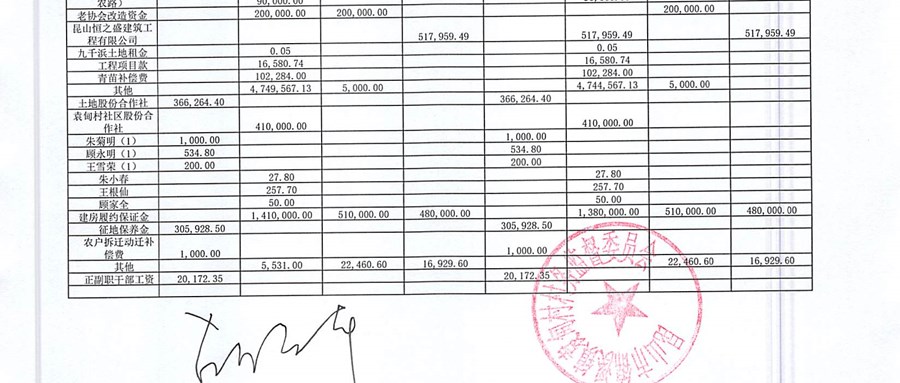 农路) 90,000.00
老协会改造资金 200,000.00 200,000.00 200,000.00
昆山恒之盛建筑工
程有限公司 517,959.49 517,959.49 517,959.49
九千浜土地租金 0.05 0.05
工程项目款 16,580.74 16,580.74
青苗补偿费 102,284.00 102,284.00
其他 4,749,567.13 5,000.00 4,744,567.13 5,000.00
土地股份合作社 366,264.40 366,264.40
袁甸村社区股份合
作社 410,000.00 410,000.00
朱菊明(1) 1,000.00 1,000.00
顾永明(1) 534.80 534.80
王雪荣(1) 200.00 200.00
朱小春 27.80 27.80
王根仙 257.70 257.70
顾家全 50.00 50.00
建房履约保证金 1,410,000.00 510,000.00 480,000.00 1,380,000.00 510,000.00 480,000.00
征地保养金 305,928.50 305,928.50
农户拆迁动迁补
偿费 1,000.00 1,000.00
其他 5,531.00 22,460.60 16,929.60 22,460.60 16,929.60
正副职干部工资 20,172.35 20,172.35